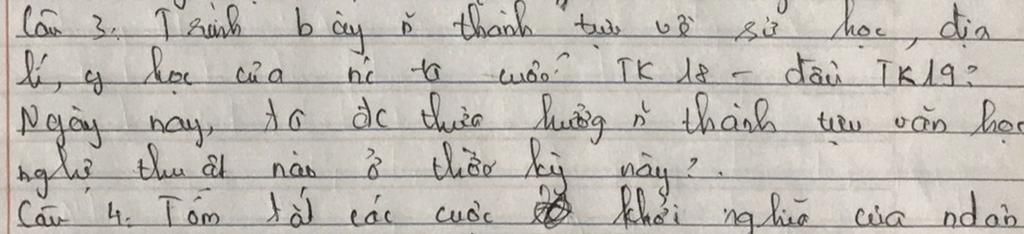 Câu 3: Trình bày ~ thành tựu về sử học, địa
lí, y học của nc ta cuối TK 18 - đầu TK19?
Ngày nay, ta đc thừa hưởng ~ thành tựu văn học
nghệ thuật nào ở thời kỳ này?.
Câu 4: Tóm tắt các cuộc khởi nghĩa của ndân